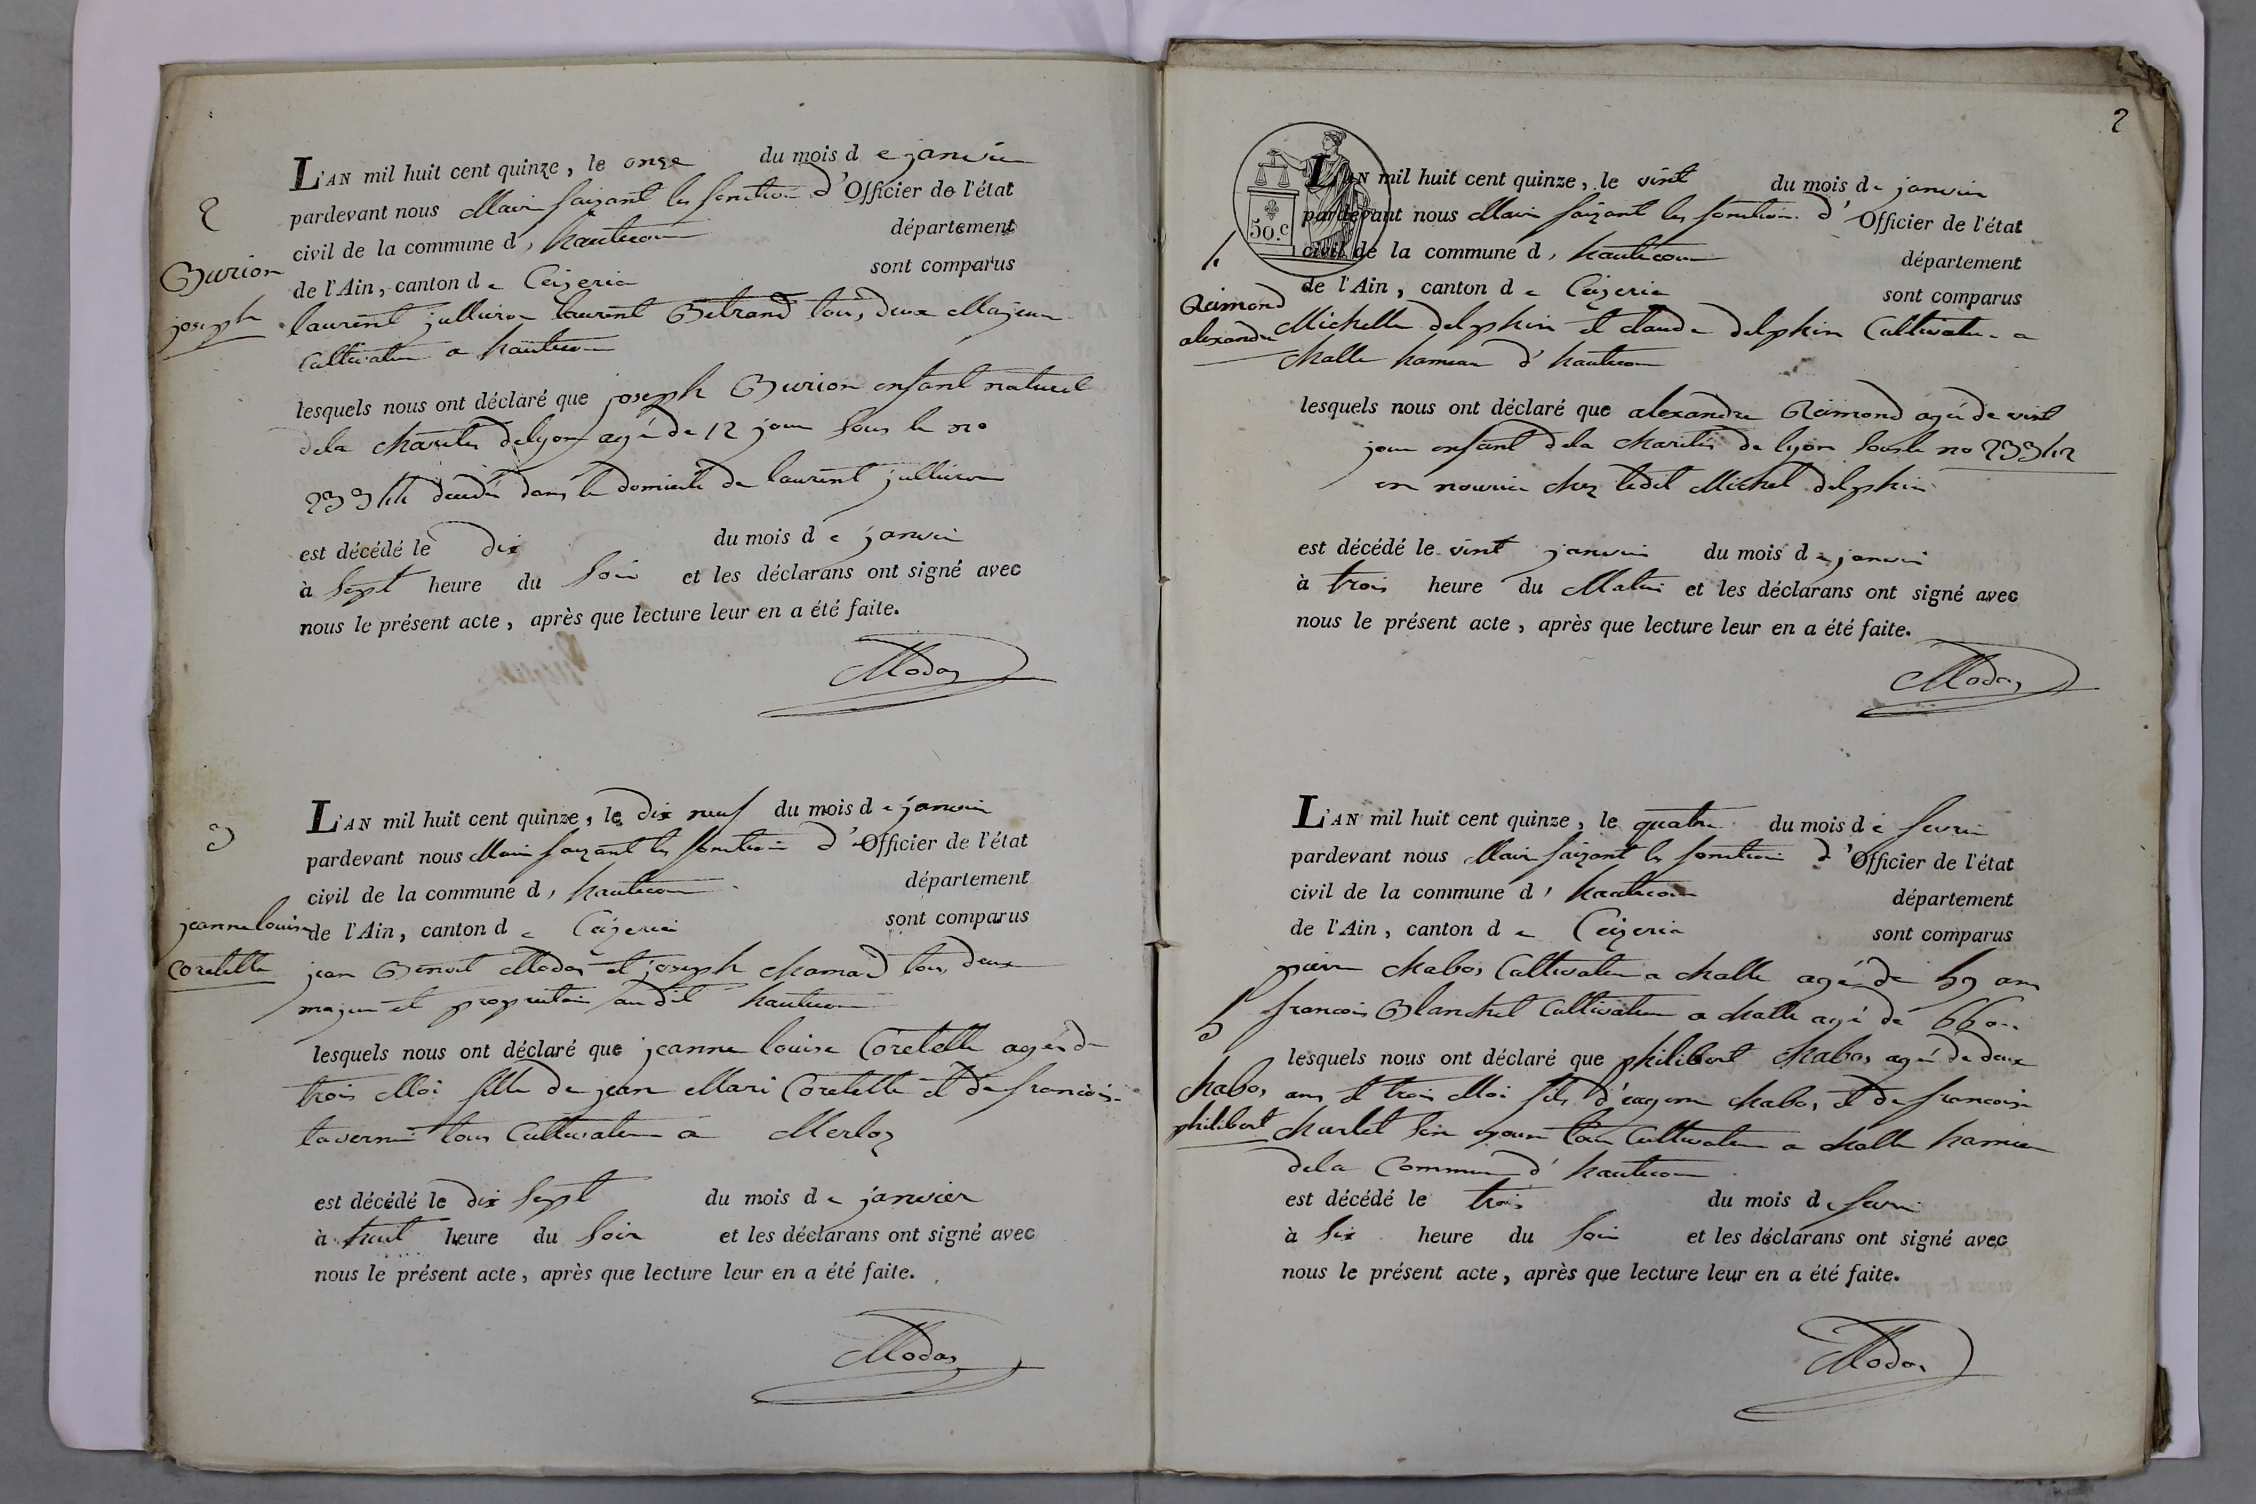 2
L'AN mil huit cent quinze, le onze du mois d e janvier
pardevant nous Maire faizant les fonction d'Officier de l'état
civil de la commune d, hautecour département
de l'Ain, canton d e Ceizeria sont comparus
Burion
joseph
laurent jullieron laurent Betrand tous deux Majeur
Cultivateur a hautecour
lesquels nous ont déclaré que joseph Burion enfant naturel
dela charité delyon agé de 12 jour sous le no
23944 décédé dans le domicile de laurent jullieron
est décédé le dix du mois d e janvier
à Sept heure du Soir et les déclarans ont signé avec
nous le présent acte, après que lecture leur en a été faite.
Modas
3
L'AN mil huit cent quinze, le dix neuf du mois d e janvier
pardevant nous Maire faizant les fonction d'Officier de l'état
civil de la commune d, hautecour département
de l'Ain, canton d e Ceizeria sont comparus
jeanne louise
Coretelle
jean Benoit Modas et joseph chamard tous deux
majeur et proprietaire audit hautecour
lesquels nous ont déclaré que jeanne louise Coretelle agée de
trois Moi fille de jean Mari Coretelle et de francoise
tavernié tous Cultivateur a Merloz
est décédé le dix Sept du mois d e janvier
à huit heure du Soir et les déclarans ont signé avec
nous le présent acte, après que lecture leur en a été faite.
Modas
2
50.c
L'AN mil huit cent quinze, le vint du mois de janvier
pardevant nous Maire faizant les fonction d'Officier de l'état
civil de la commune d, hautecour département
de l'Ain, canton d e Ceizeria sont comparus
4
Reimond
alexandre
Michelle delphin et claude delphin Cultivateur a
challe hameau d'hautecour
lesquels nous ont déclaré que alexandre Reimond agé de vint
jour enfant dela charité de lyon sous le no 23942
en nourrice chez ledit Michel delphin
est décédé le vint janvier du mois d e janvier
à trois heure du Matin et les déclarans ont signé avec
nous le présent acte, après que lecture leur en a été faite.
Modas
L'AN mil huit cent quinze, le quatre du mois d e fevrier
pardevant nous Maire faizant les fonction d'Officier de l'état
civil de la commune d, hautecour département
de l'Ain, canton d e Ceizeria sont comparus
pierre chabos Cultivateur a challe agé de 59 ans
5
francois Blanchet Cultivateur a challe agé de 66 an
lesquels nous ont déclaré que philibert chabos agé de deux
chabos
philibert
ans et trois Moi fils d'eugene chabos et de francoise
churlet son epouse tous Cultivateur a challe hameau
dela Commune d'hautecour
est décédé le trois du mois de fevrier
à Six heure du Soir et les déclarans ont signé avec
nous le présent acte, après que lecture leur en a été faite.
Modas